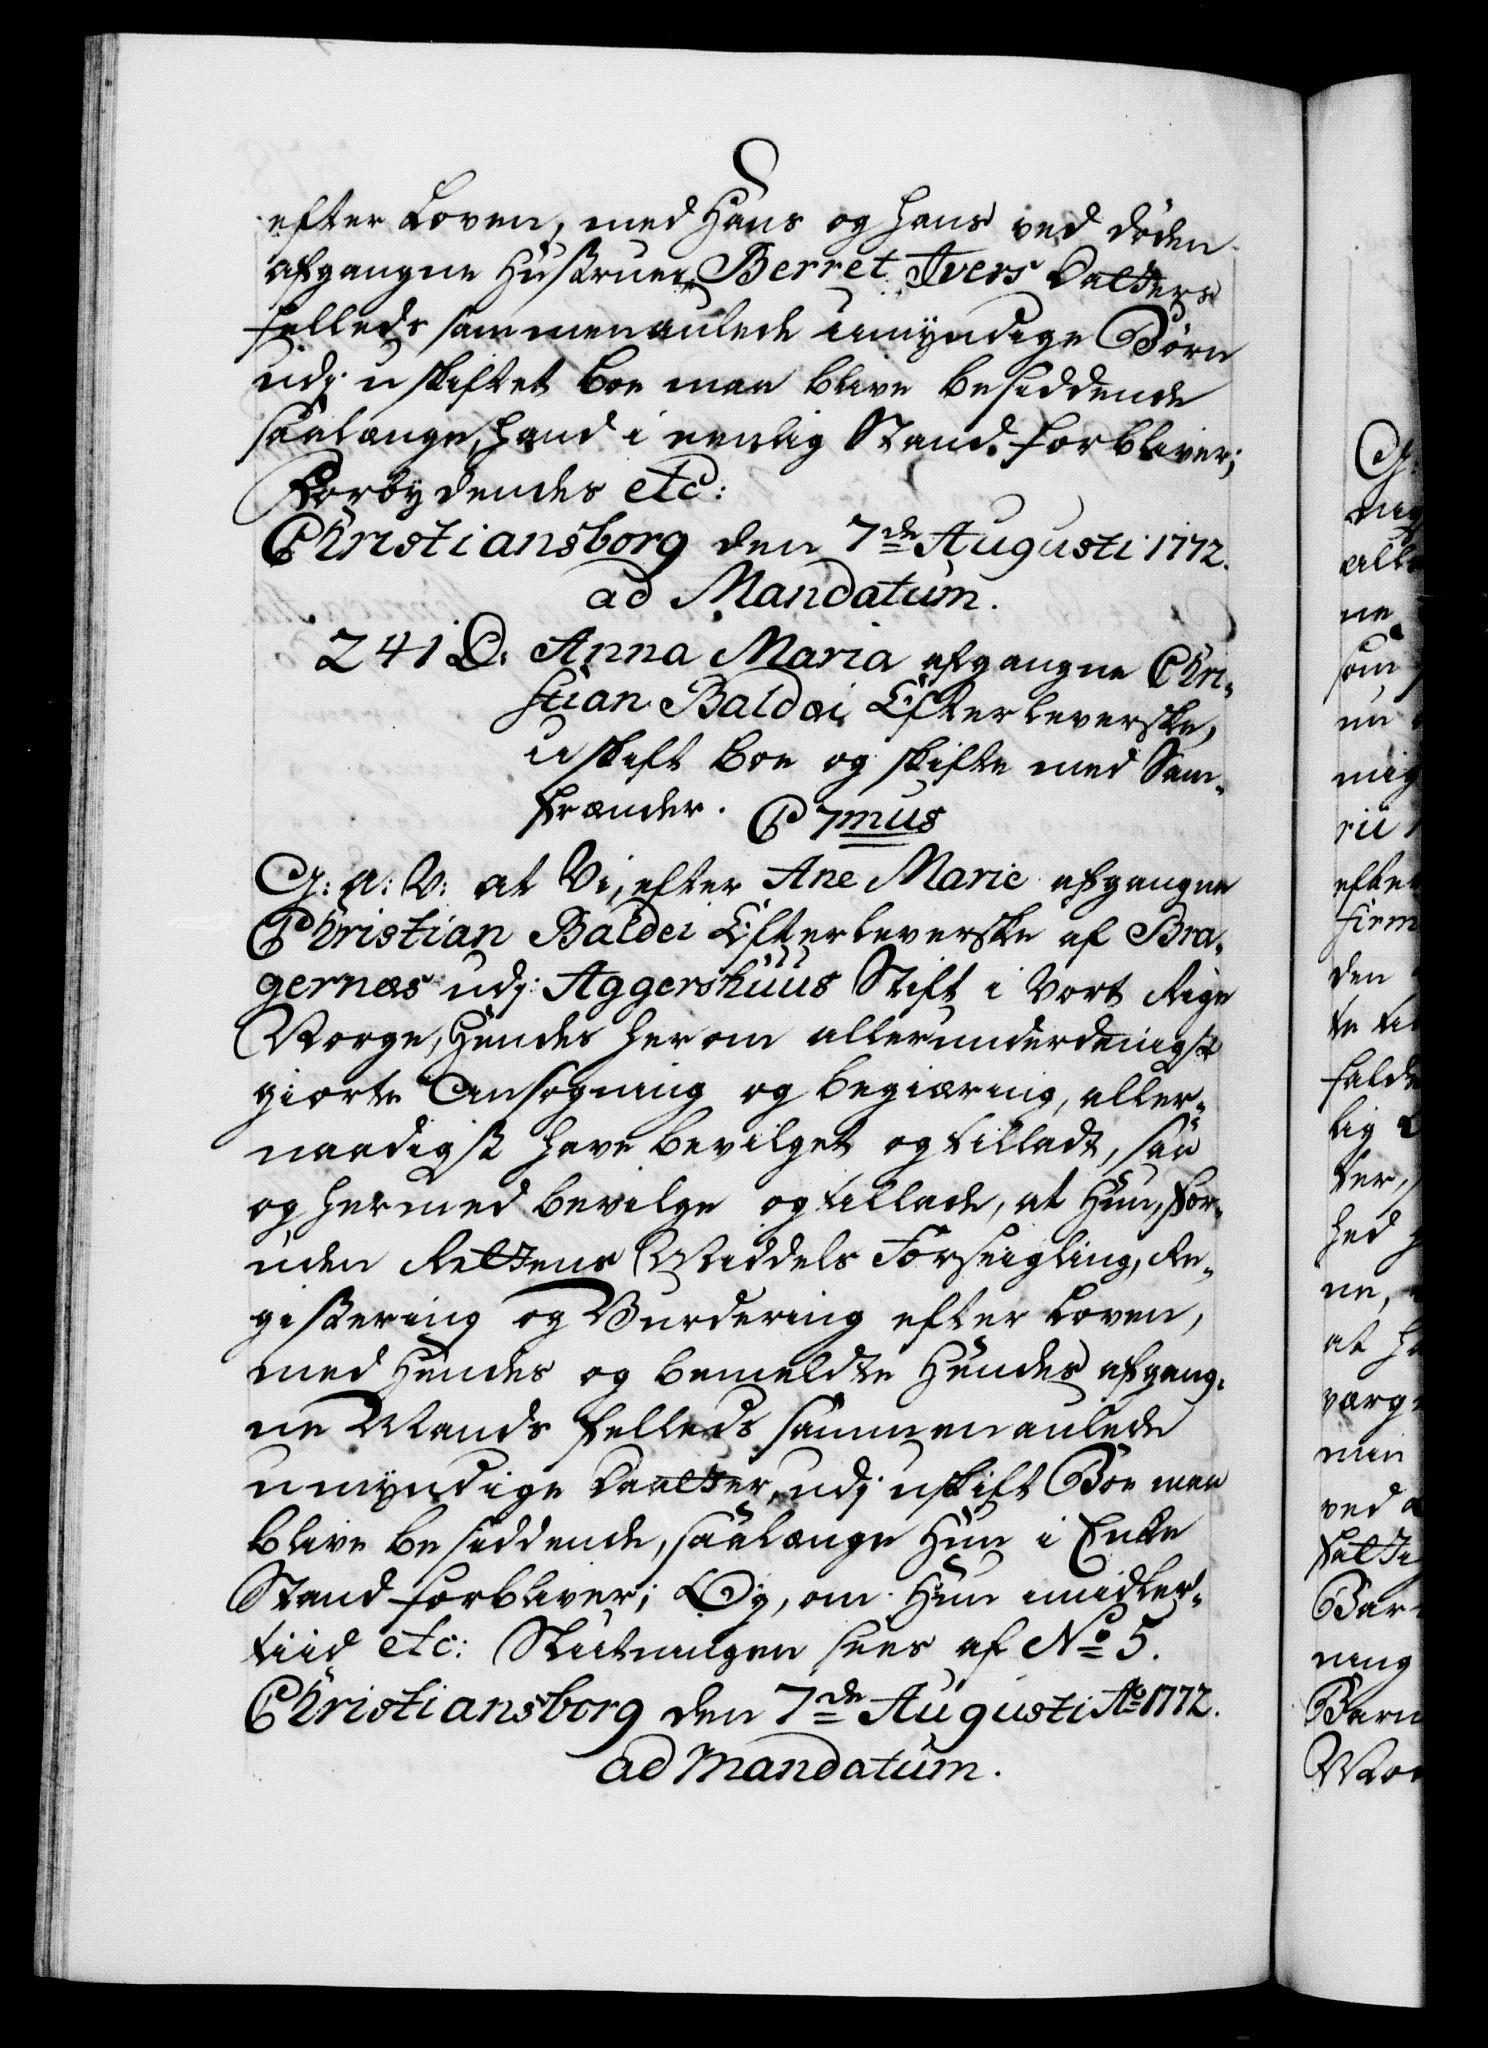 efter Loven, med Hans og hans ved døden
afgangne Hustrues Berret Ivers Datters
felleds sammenaulede umÿndige Børn
udj uskiftet Boe maa blive besiddende
saalænge hand i eenlig Stand forbliver;
Forbÿdendes etc:
Christiansborg den 7de Augusti 1772.
ad Mandatum.
241 D. Anna Maria afgangne Chri-
stian Baldæi Efterleverske,
uskift Boe og skifte med Sam-
frænder. C 7mus
G: A: V: at Vi, efter Ane Marie afgangne
Christian Baldei Efterleverske af Bra-
gernæs udj Aggershuus Stift i Vort Rige
Norge, Hendes herom allerunderdanigst
giorte Ansøgning og begiæring, aller-
naadigst have bevilget og tilladt, saa
og hermed bevilge og tillade, at Hun, for-
uden Rettens Middels Forseigling, Re-
gistering og Vurdering efter Loven,
med Hendes og bemeldte Hendes afgang-
ne Mands felleds sammenaulede
umÿndige Daatter, udj uskift Boe maa
blive besiddende, saalænge Hun i Enke
Stand forbliver; Og, om Hun imidler-
tiid etc: Slutningen sees af No 5.
Christiansborg den 7de Augusti Ao 1772.
ad Mandatum.